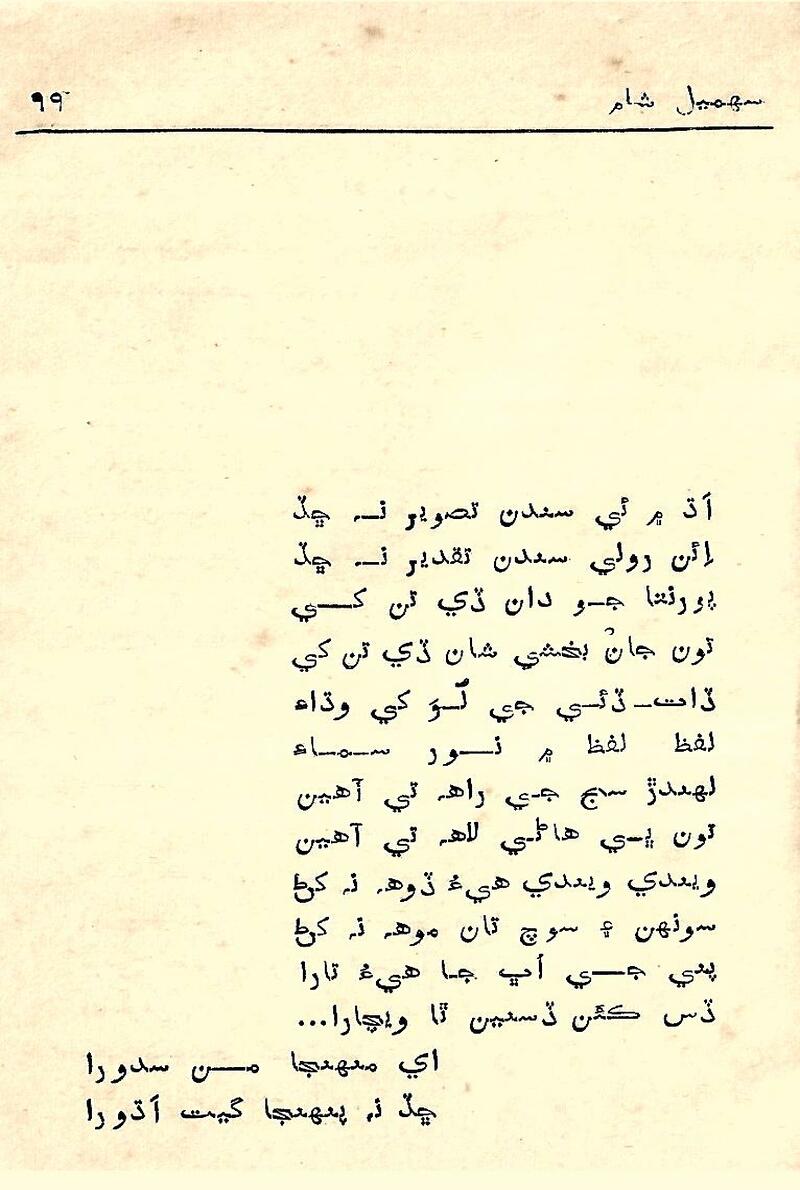 سھميل شام ۹۹
اَڌ ۾ ئي سندن تصوير نہ ڇڏ
اِئن رولي سندن تقدير نہ ڇڏ
پورنتا جو دان ڏي تن کي
تون جان بخشي شان ڏي تن کي
ڏات ڏئي جي لَوَ کي وڌاءِ
لفظ لفظ ۾ نور سماءِ
لهندڙ سج جي راهہ تي آهين
تون ڀي هاڻي لاهہ تي آهين
ويندي ويندي هيءُ ڏوهہ نہ ڪر
سونهن ۽ سوچ تان موهہ نہ ڪر
پني جي اُڀ جا هيءُ تارا
ڏس ڪئن ڏسئين ٿا ويچارا...
اي منهنجا من سدورا
ڇڏ نہ پنهنجا گيت اَڌورا